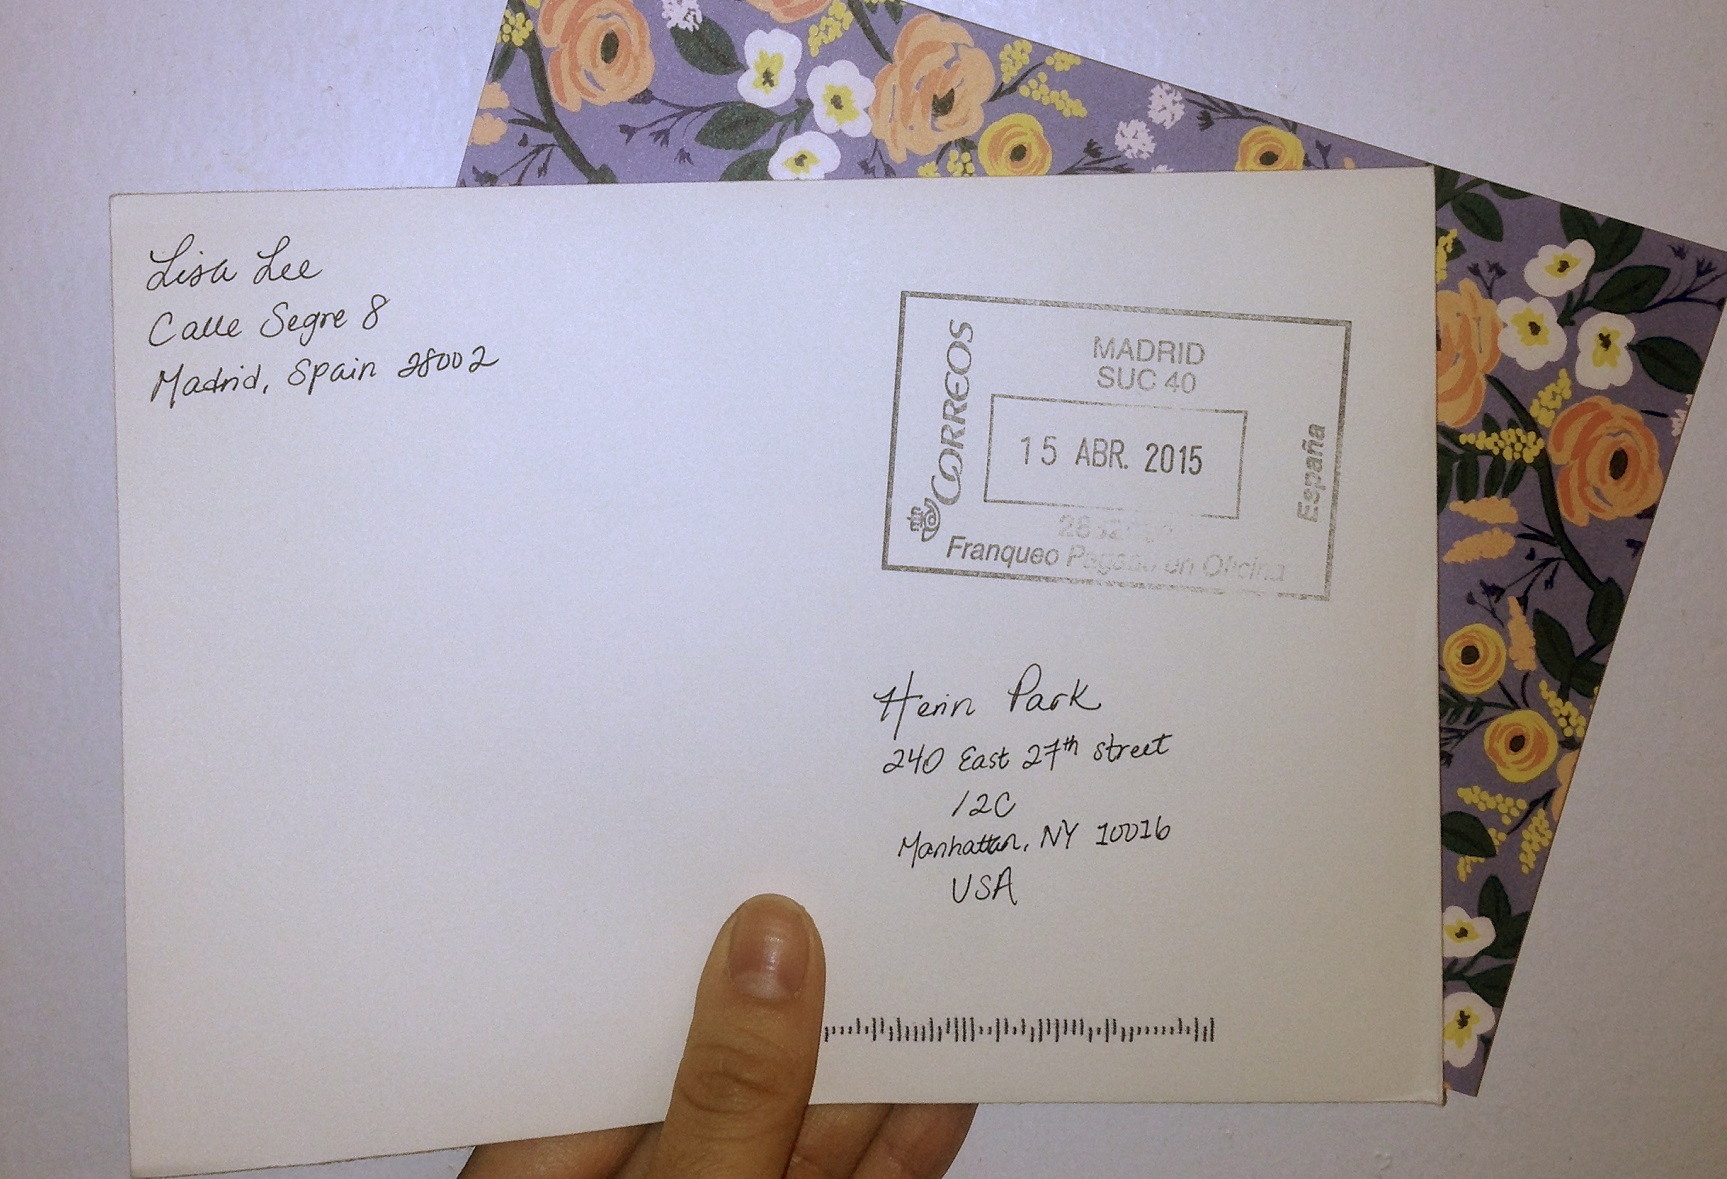 Lisa Lee
Calle Segre 8
Madrid, Spain 28002
CORREOS
MADRID
SUC 40
15 ABR. 2015
España
Franqueo Pagado en Oficina
Henn Park
240 East 27th street
12C
Manhattan, NY 10016
USA